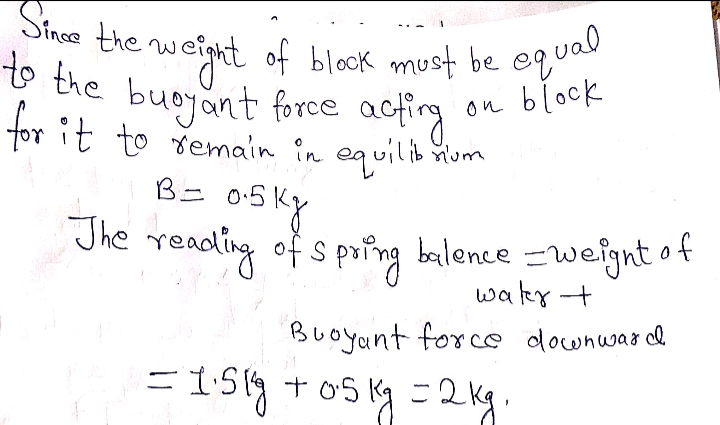 Since the weight of block must be equal
to the buoyant force acting on block
for it to remain in equilibrium
B = 0.5 Kg
The reading of spring balence = weight of
water +
Buoyant force downward
= 1.5 kg + 0.5 Kg = 2 kg.